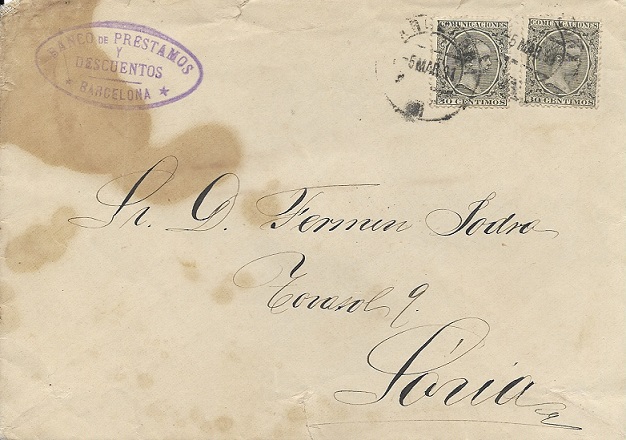 BANCO DE PRESTAMOS
Y
DESCUENTOS
BARCELONA
COMUNICACIONES
30 CENTIMOS
COMUNICACIONES
30 CENTIMOS
5 MAR 91
5 MAR
Sr. D. Fermin Jodra
9.
Sória